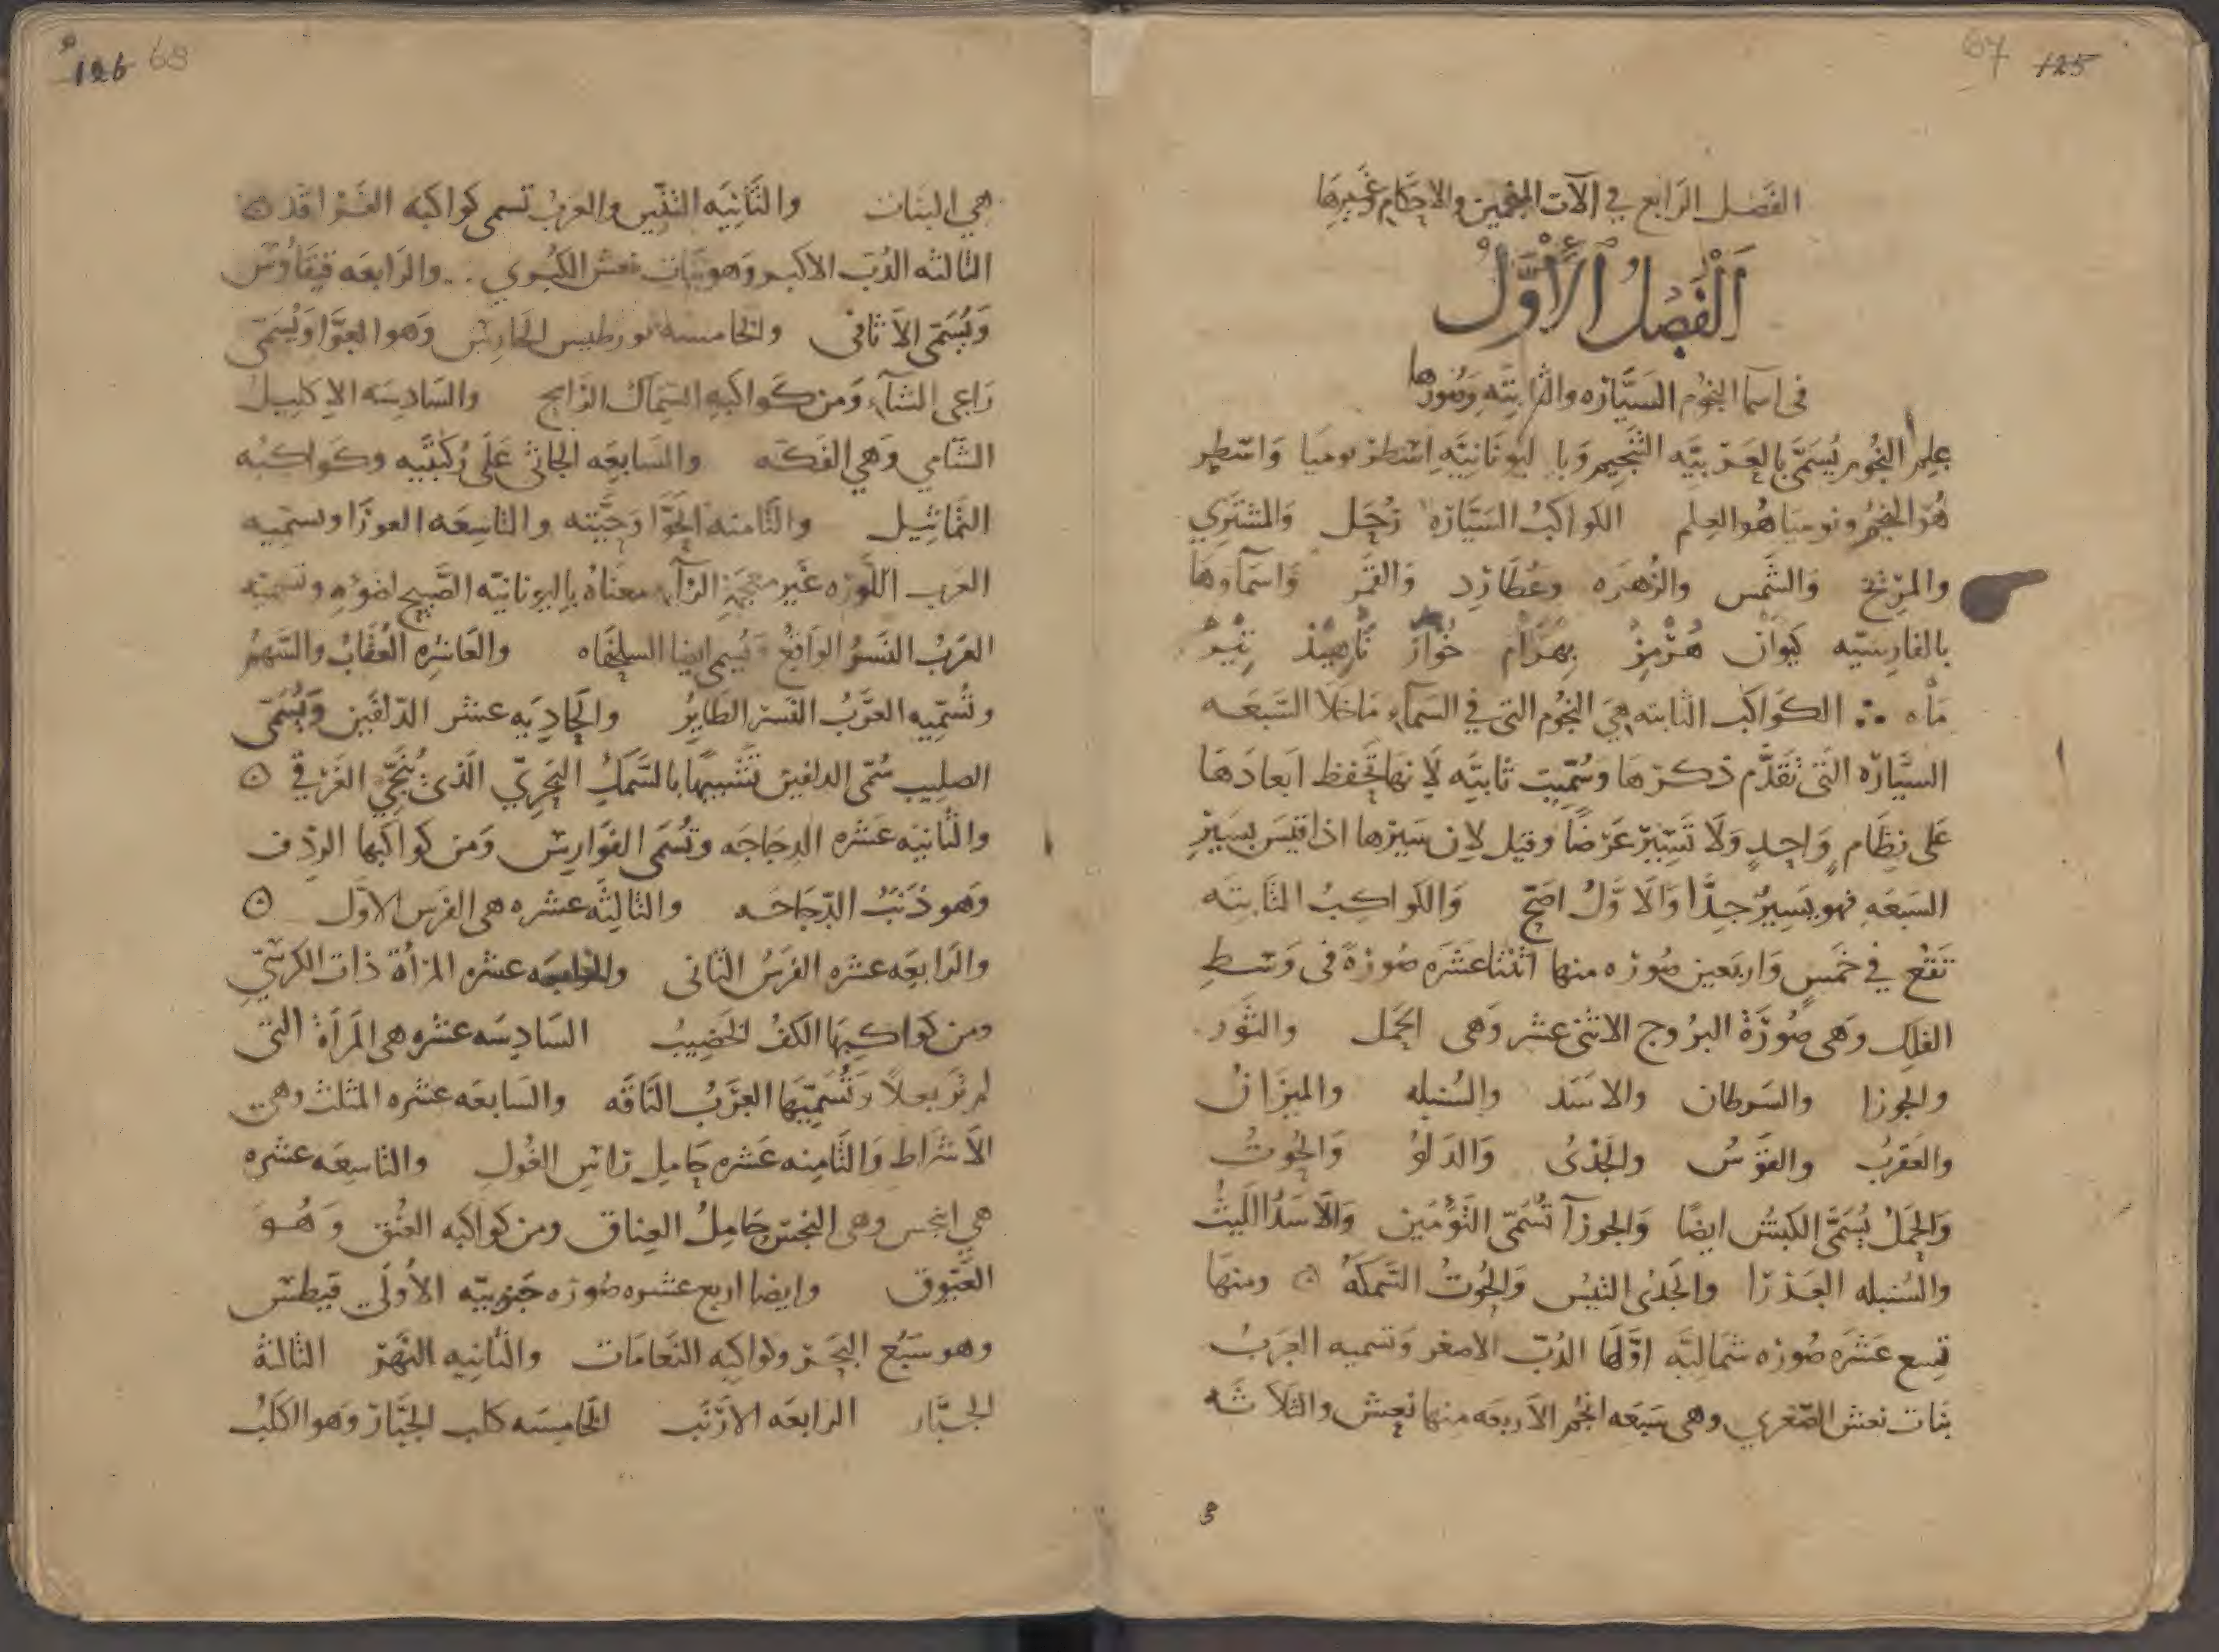 67 125
الفَصل الرَابع في الآت المنجمين والاحكام وغيرها
اَلْفَصْلُ الْأَوَّلُ
فى اسما النجُوم السَيَّارَه والثابتَه وَصُورها
علم النجُوم يُسَمَّى بالعَرَبيَّه التَنجيم وَبا ليُونَانِيَّه اِسْطرْنوميَا وَاسْطر
هُوَ النجمُ ونوميَا هُو العِلم الكواكبُ السَيَّارَه زُحَل وَالمشتَري
والمرّيخ وَالشَمس والزُهَرَه وعُطَارِد وَالقَمَر وَاسمَآوهَا
بالفَارِسيّه كَيَوَان هُرْمِزْ بِهرَام خُوَاز نَاهِيذ تِيْرْ
مَاْه ∴ الكَوَاكَب الثَابته هيَ النجُوم التي في السَمآء مَاخَلَا السَّبعَه
السيَّارَه التَى تقَدَّم ذكرهَا وَسُمّيت ثابتَه لِأَنهَا تحفظ ابعادَهَا
عَلى نِظَام وَاحِدٍ وَلَا تَسيَر عَرْضًا وقيل لان سَيرَها اذا قيسَ بسَيْرِ
السَبعَه فهو يَسِيرٌ جدًّا وَالَاوَّلُ اصَحّ وَالكَواكِبُ الثَابته
تَقعُ في خَمسٍ وَاربَعين صُورَه منها اثنتَا عَشَرَه صُورَةً فى وَسَطِ
الفَلَك وَهى صُورَةْ البرُوج الاثنى عشر وَهى الحَمَل والثَور
والجوزا والسَرطان والاسَد والسُنبله والميزَان
والعَقرَبُ والقَوسُ والجَدْىُ وَالدَلوُ وَالحُوتُ
وَالحَمَلُ يُسَمَّى الكبشُ ايضًا وَالجوزآ تُسَمّى التَوْءَمَين وَالَاسَدُ اللَيثُ
والسُنبله العَذرَا والجَدْىُ التَيسُ وَالحُوتُ السَمكَهْ ⊙ ومنهَا
تسع عَشَرَه صُورَه شمَاليَّه اوَّلهَا الدُبّ الاصغر وَتسميه العَرَبُ
بَنَات نعش الصّغري وهى سَبعَه انجُم الاَربعَه منها نَعش والثَلَاثَه
126 68
هي البنات والثَانِيَه التنّين والعَرَبُ تسمى كواكبَه الفَرقدان
الثالثه الدُبّ الاكبر وَهو بَنَات نعش الكبُري ∴ والرَابعَه قيقَاوُس
وَيُسَمّى الاَثافى والخامسه بورطيس الحَارِس وَهو العوَّا وَيُسَمّى
رَاعى الشآء وَمن كَواكبَهِ السِمَاك الرَامح والسَادِسَه الاِكليل
الشَامي وَهي الفَكَه والسَابعَه الجَاثى عَلَى رُكبَتَيه وكَوَاكبُه
التَمَاثِيل والثَامنه الحَوَّا وَحيَّته والتاسِعَه العوزَا وتسمّيه
العرب اللّورَه غَير معجمَة الرَآء معنَاهُ باليونانيّه الصَّبيح لضوئه وتسميَه
العَرَبُ النَسرُ الوَاقعُ وَيُسمى ايضا السلحَفَاه والعَاشرَه العُقَابُ والسَهمُ
وتُسَمّيه العَرَبُ النَسرَ الطَايِرُ والحَاديَه عشر الدّلفَين وَيُسَمّى
الصليب سُمّى الدلفين تَشبيهًا بالسَّمَكِ البَحريّ الَذى يُنَجّي الغَرقى ⊙
والثَانيَه عَشره الدِجَاجَه وتُسَمَى الفَوَارِس وَمن كواكبَها الردِف
وَهو ذَنَبُ الدّجَاجَه والثَالِثَه عشره هى الفَرَس الاوّل ⊙
والرَابعَه عشره الفَرَسُ الثانى والخامسه عشره المرأةْ ذات الكرسّي
ومن كواكِبهَا الكَفُ الخضيبُ السَادِسَه عشره هى المَرأةْ التى
لم ترَ بعلاً وَتُسَمّيهَا العَرَبُ النَاقَه والسَابعَه عشره المثلث وهى
الاَشَرَاط وَالثَامِنه عَشره حَامِل رَاس الغُول والتاسِعَه عشره
هي وهى حَامِلُ العِناق ومن كواكبه العنُق وَهُوَ
العَيّوق وايضا اربع عشره صُورَه جَنوبيّه الأولَى قيطس
وهو سَبُع البَحر وكواكبه النَعَامَات والثَانيه النَهَر الثَالثهْ
الجبَّار الرابعَه الاَرنَب الخَامِسَه كلب الجَبَّار وَهو الكَلبُ